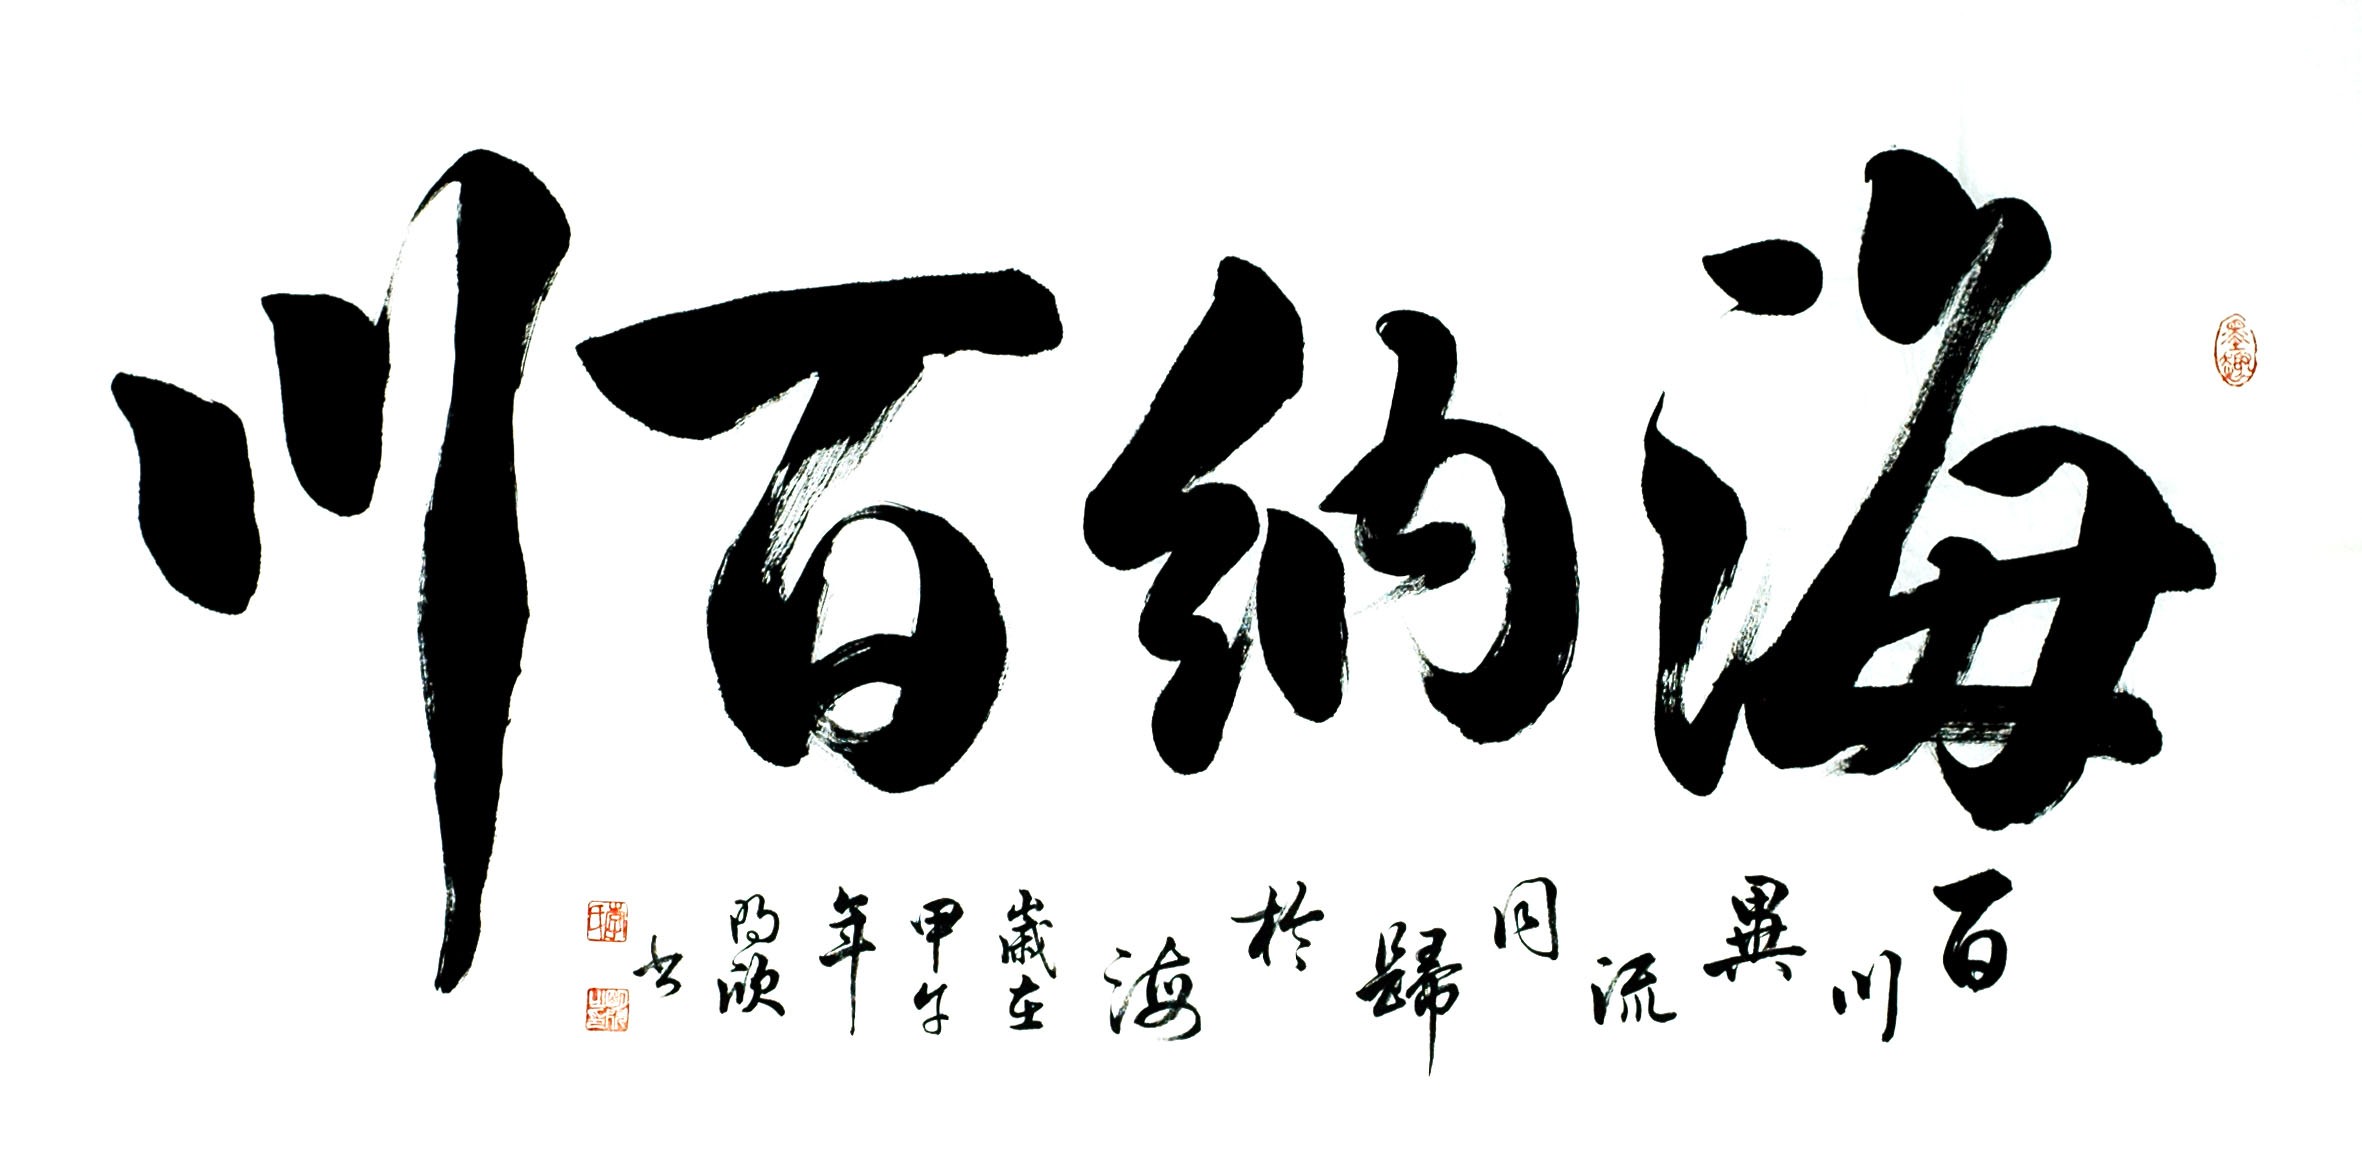 海納百川
百川異流同歸於海歲在甲午年明欣书